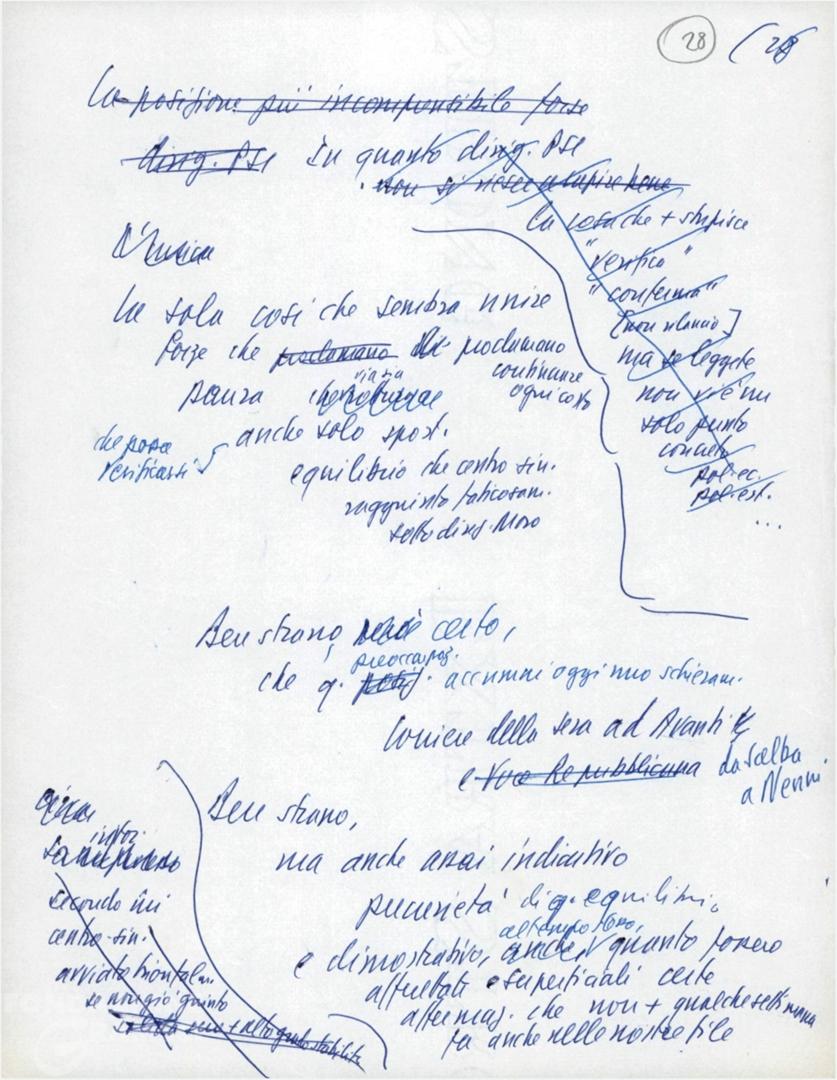 28 (28
La posizione più incomprensibile forse
dirig. PSI In quanto dirig. PSI
non si riesce a capire bene
La cosa che + stupisce
"verifica"
"conferma"
[non rilancio]
ma se leggete
non vi è un
solo punto
concreto
pol. ec.
pol. est.
...
L'unica
La sola cosa che sembra unire
forze che proclamano che proclamano
continuare
ogni costo
paura che
anche solo spost.
che possa
verificarsi
equilibrio che centro sin.
raggiunto faticosam.
sotto direz. Moro
Ben strano, certo,
preoccupaz.
che q. posiz. accumuni oggi uno schieram.
Corriere della Sera ad Avanti
e Voce Repubblicana da Scelba
a Nenni.
Ben strano,
ma anche assai indicativo
precarietà di q. equilibri,
al tempo stesso,
e dimostrativo, anche, quanto fossero
affrettate e superficiali certe
affermaz. che non + qualche settimana
fa anche nelle nostre file
secondo cui
centro-sin.
avviato trionfalm.
se non già giunto
stabilità